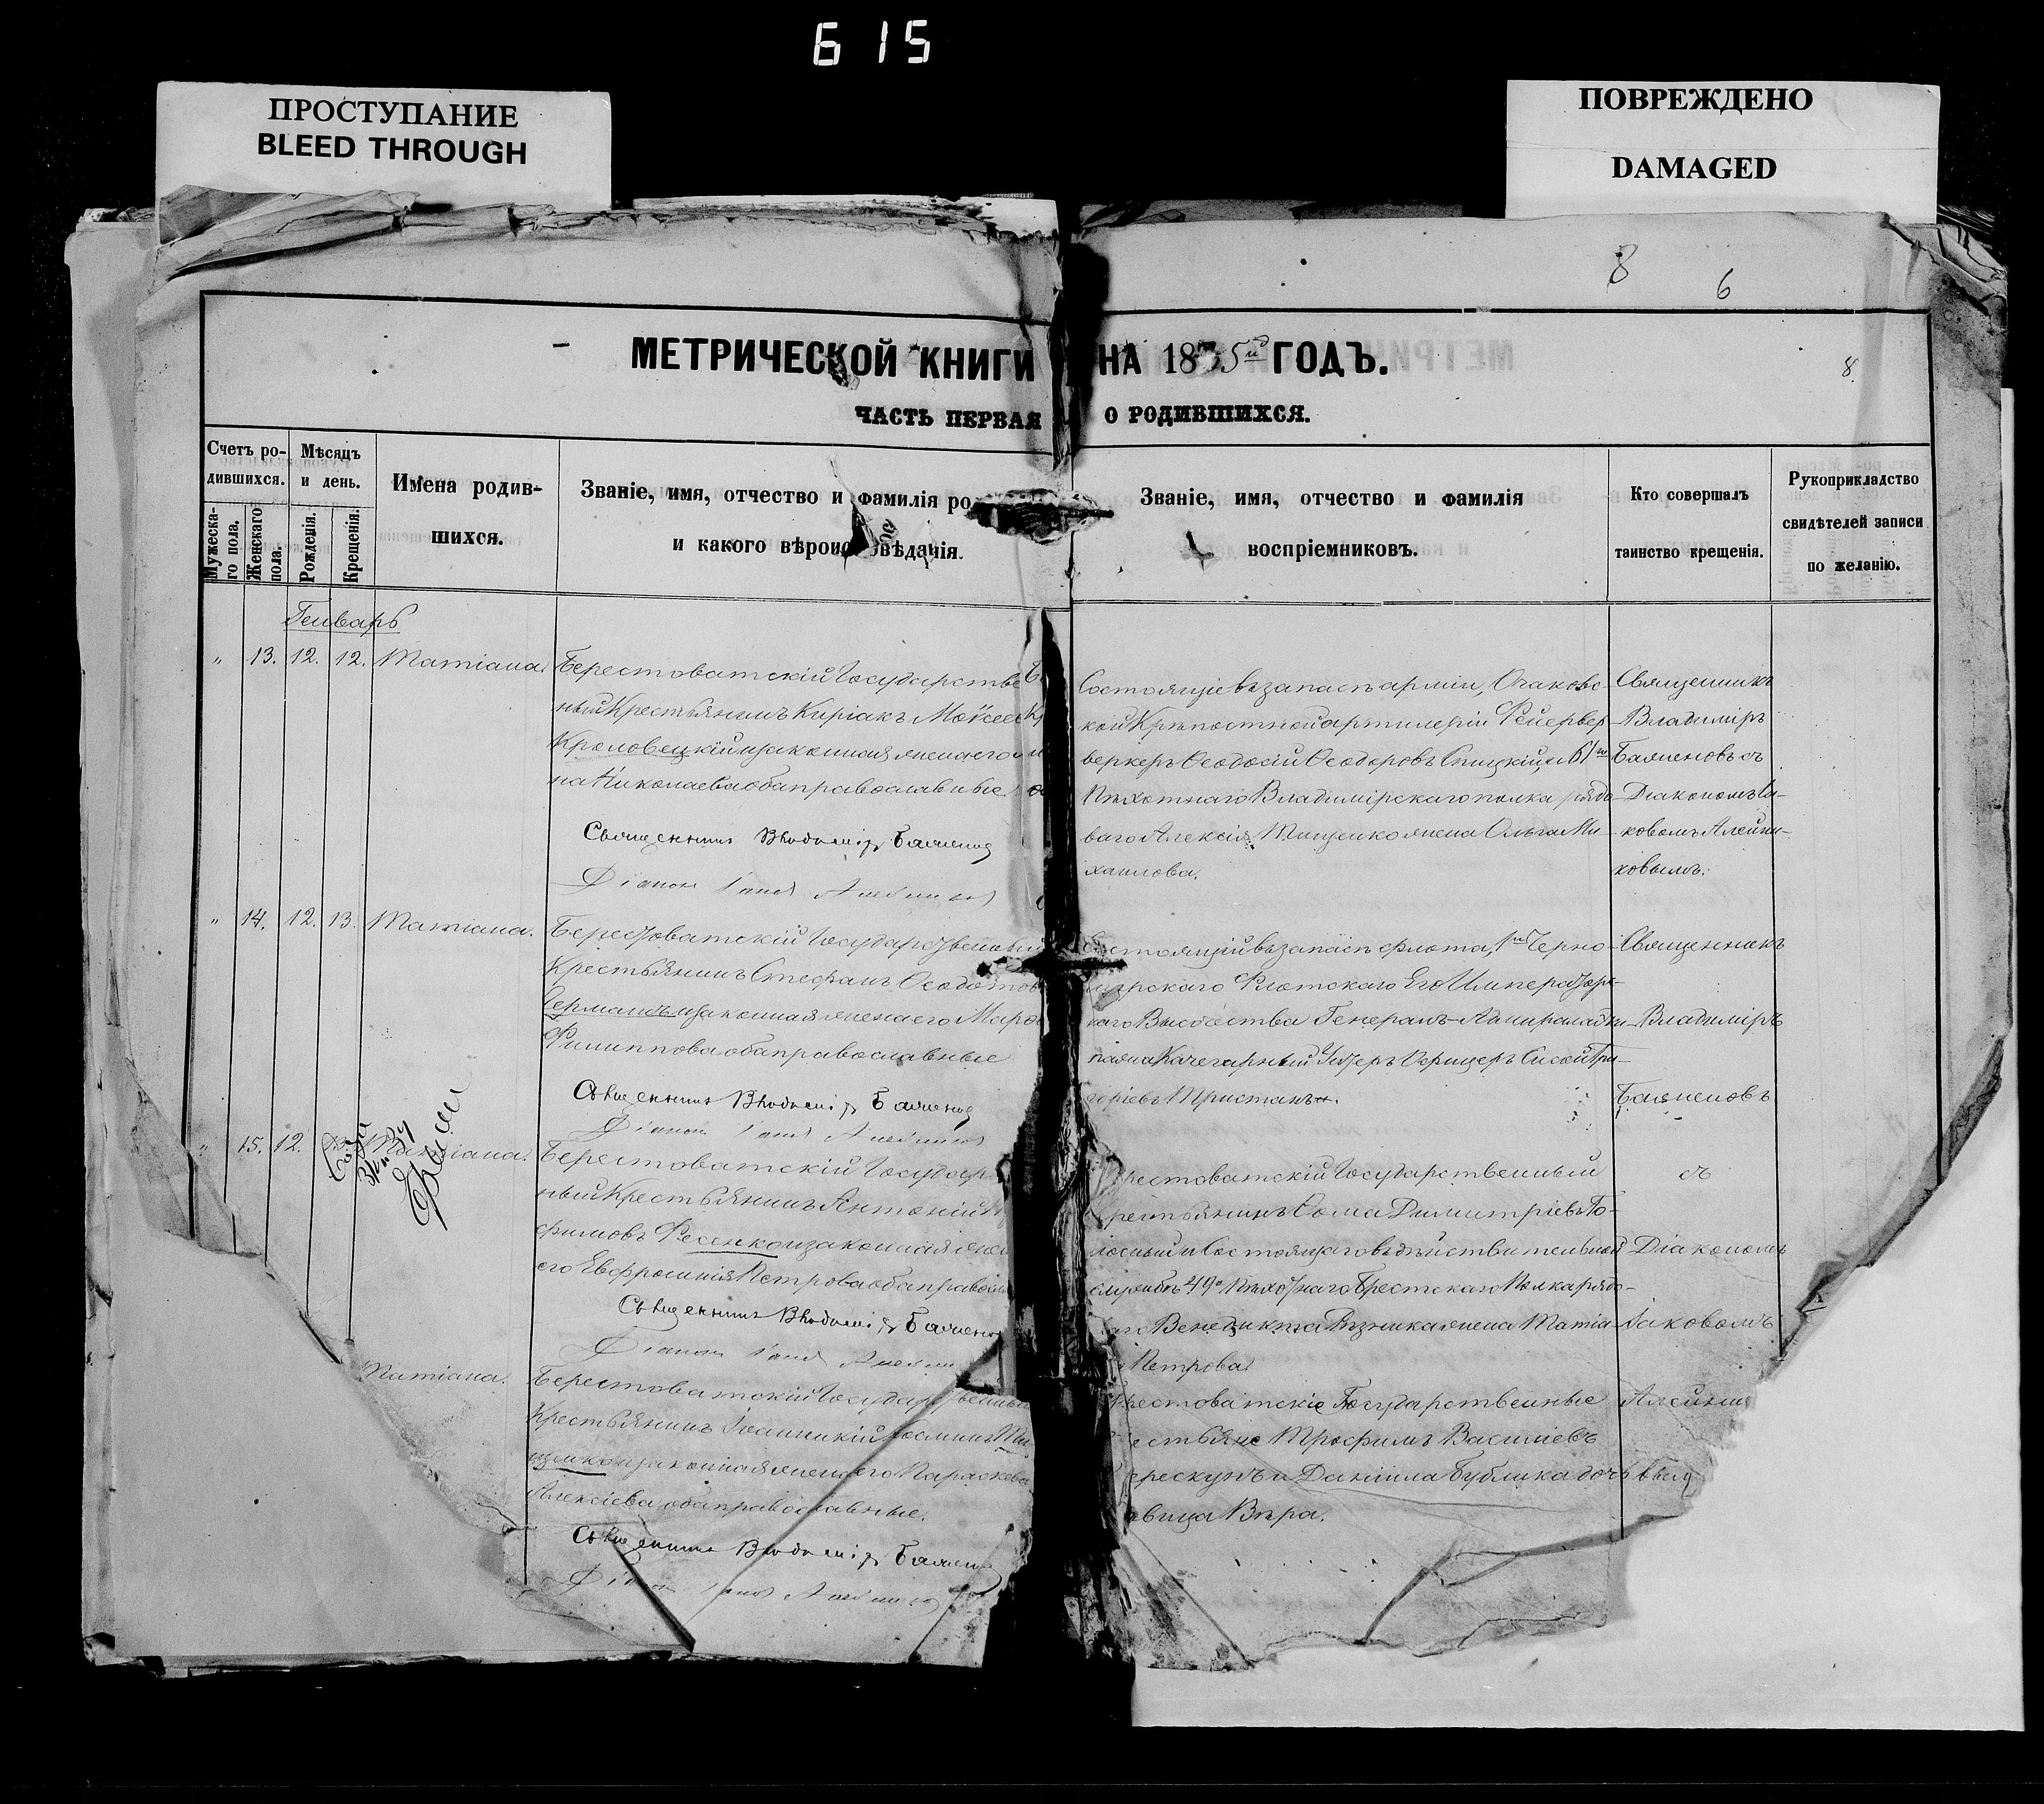 615
ПРОСТУПАНИЕ
BLEED THROUGH
ПОВРЕЖДЕНО
DAMAGED
8
6
МЕТРИЧЕСКОЙ КНИГИ НА 1885й ГОДЪ.
8.
ЧАСТЬ ПЕРВАЯ О РОДИВШИХСЯ.
Счетъ ро-
дившихся.
Мужеска-
го пола.
Женскаго
пола.
Мѣсяцъ
и день.
Рожденія.
Крещенія.
Имена родив-
шихся.
Званіе, имя, отчество и фамилія ро
и какого вѣроисповѣданія.
Званіе, имя, отчество и фамилія
воспріемниковъ.
Кто совершалъ
таинство крещенія.
Рукоприкладство
свидѣтелей записи
по желанію.
Генварь
" 13. 12. 12. Татіана.
Берестоватскій Государстве
ный Крестьянинъ Киріакъ Моѵсее
Кроловецкій и законная жена его
на Николаева оба православные
Священникъ Владиміръ Баженов
Діаконъ Іаковъ Алейников
Состоящіе въ запасѣ арміи, Очаковс-
кой Крѣпостной артилеріи Фейервер-
веркеръ Ѳеодосій Ѳеодоровъ Спицкій и 61го
Пѣхотнаго Владимірскаго полка рядо-
ваго Алексія Тищенко жена Ольга Ми-
хаилова.
Священникъ
Владиміръ
Баженовъ съ
Діакономъ Іа-
ковомъ Алейни-
ковымъ.
" 14. 12. 13. Татіана.
Берестоватскій Государственный
Крестьянинъ Стефанъ Ѳеодотов
Серманъ и законная жена его Марѳ
Филиппова оба православные
Священникъ Владиміръ Баженов
Діаконъ Іаковъ Алейников
Состоящій въ запасѣ флота, 1го Черно-
морскаго Флотскаго Его Императорс-
каго Высочества Генералъ-Адмирала
Качегарный Унтеръ Офицеръ Сисой Гри-
горіевъ Тристанъ.
Священникъ
Владиміръ
Баженовъ
" 15. 12. Татіана.
Берестоватскій Государ
ный Крестьянинъ Антоній
фимовъ Фесенко и законная жен
его Евфросинія Петрова оба право
Священникъ Владиміръ Баженов
Діаконъ Іаковъ Алейни
рестоватскій Государственный
рестьянинъ Ѳома Димитріевъ Го-
лосный и Состоящаго въ дѣйствительной
службѣ 49го Пѣхотнаго Брестскаго Полка рядо-
ваго Венедикта Рѣзника жена Татіа-
Петрова
съ
Діакономъ
Іаковомъ
Татіана.
Берестоватскій Государственный
Крестьянинъ Іоанникій Косминъ Ти
щенко и законная жена его Параскева
Алексіева оба православные.
Священникъ Владиміръ Баженов
Діаконъ Іаковъ Алейников
рестоватскіе Государственные
рестьяне Трофимъ Василіевъ
ерескунъ и Даніила Бублика дочь
вица Вѣра.
Алейни